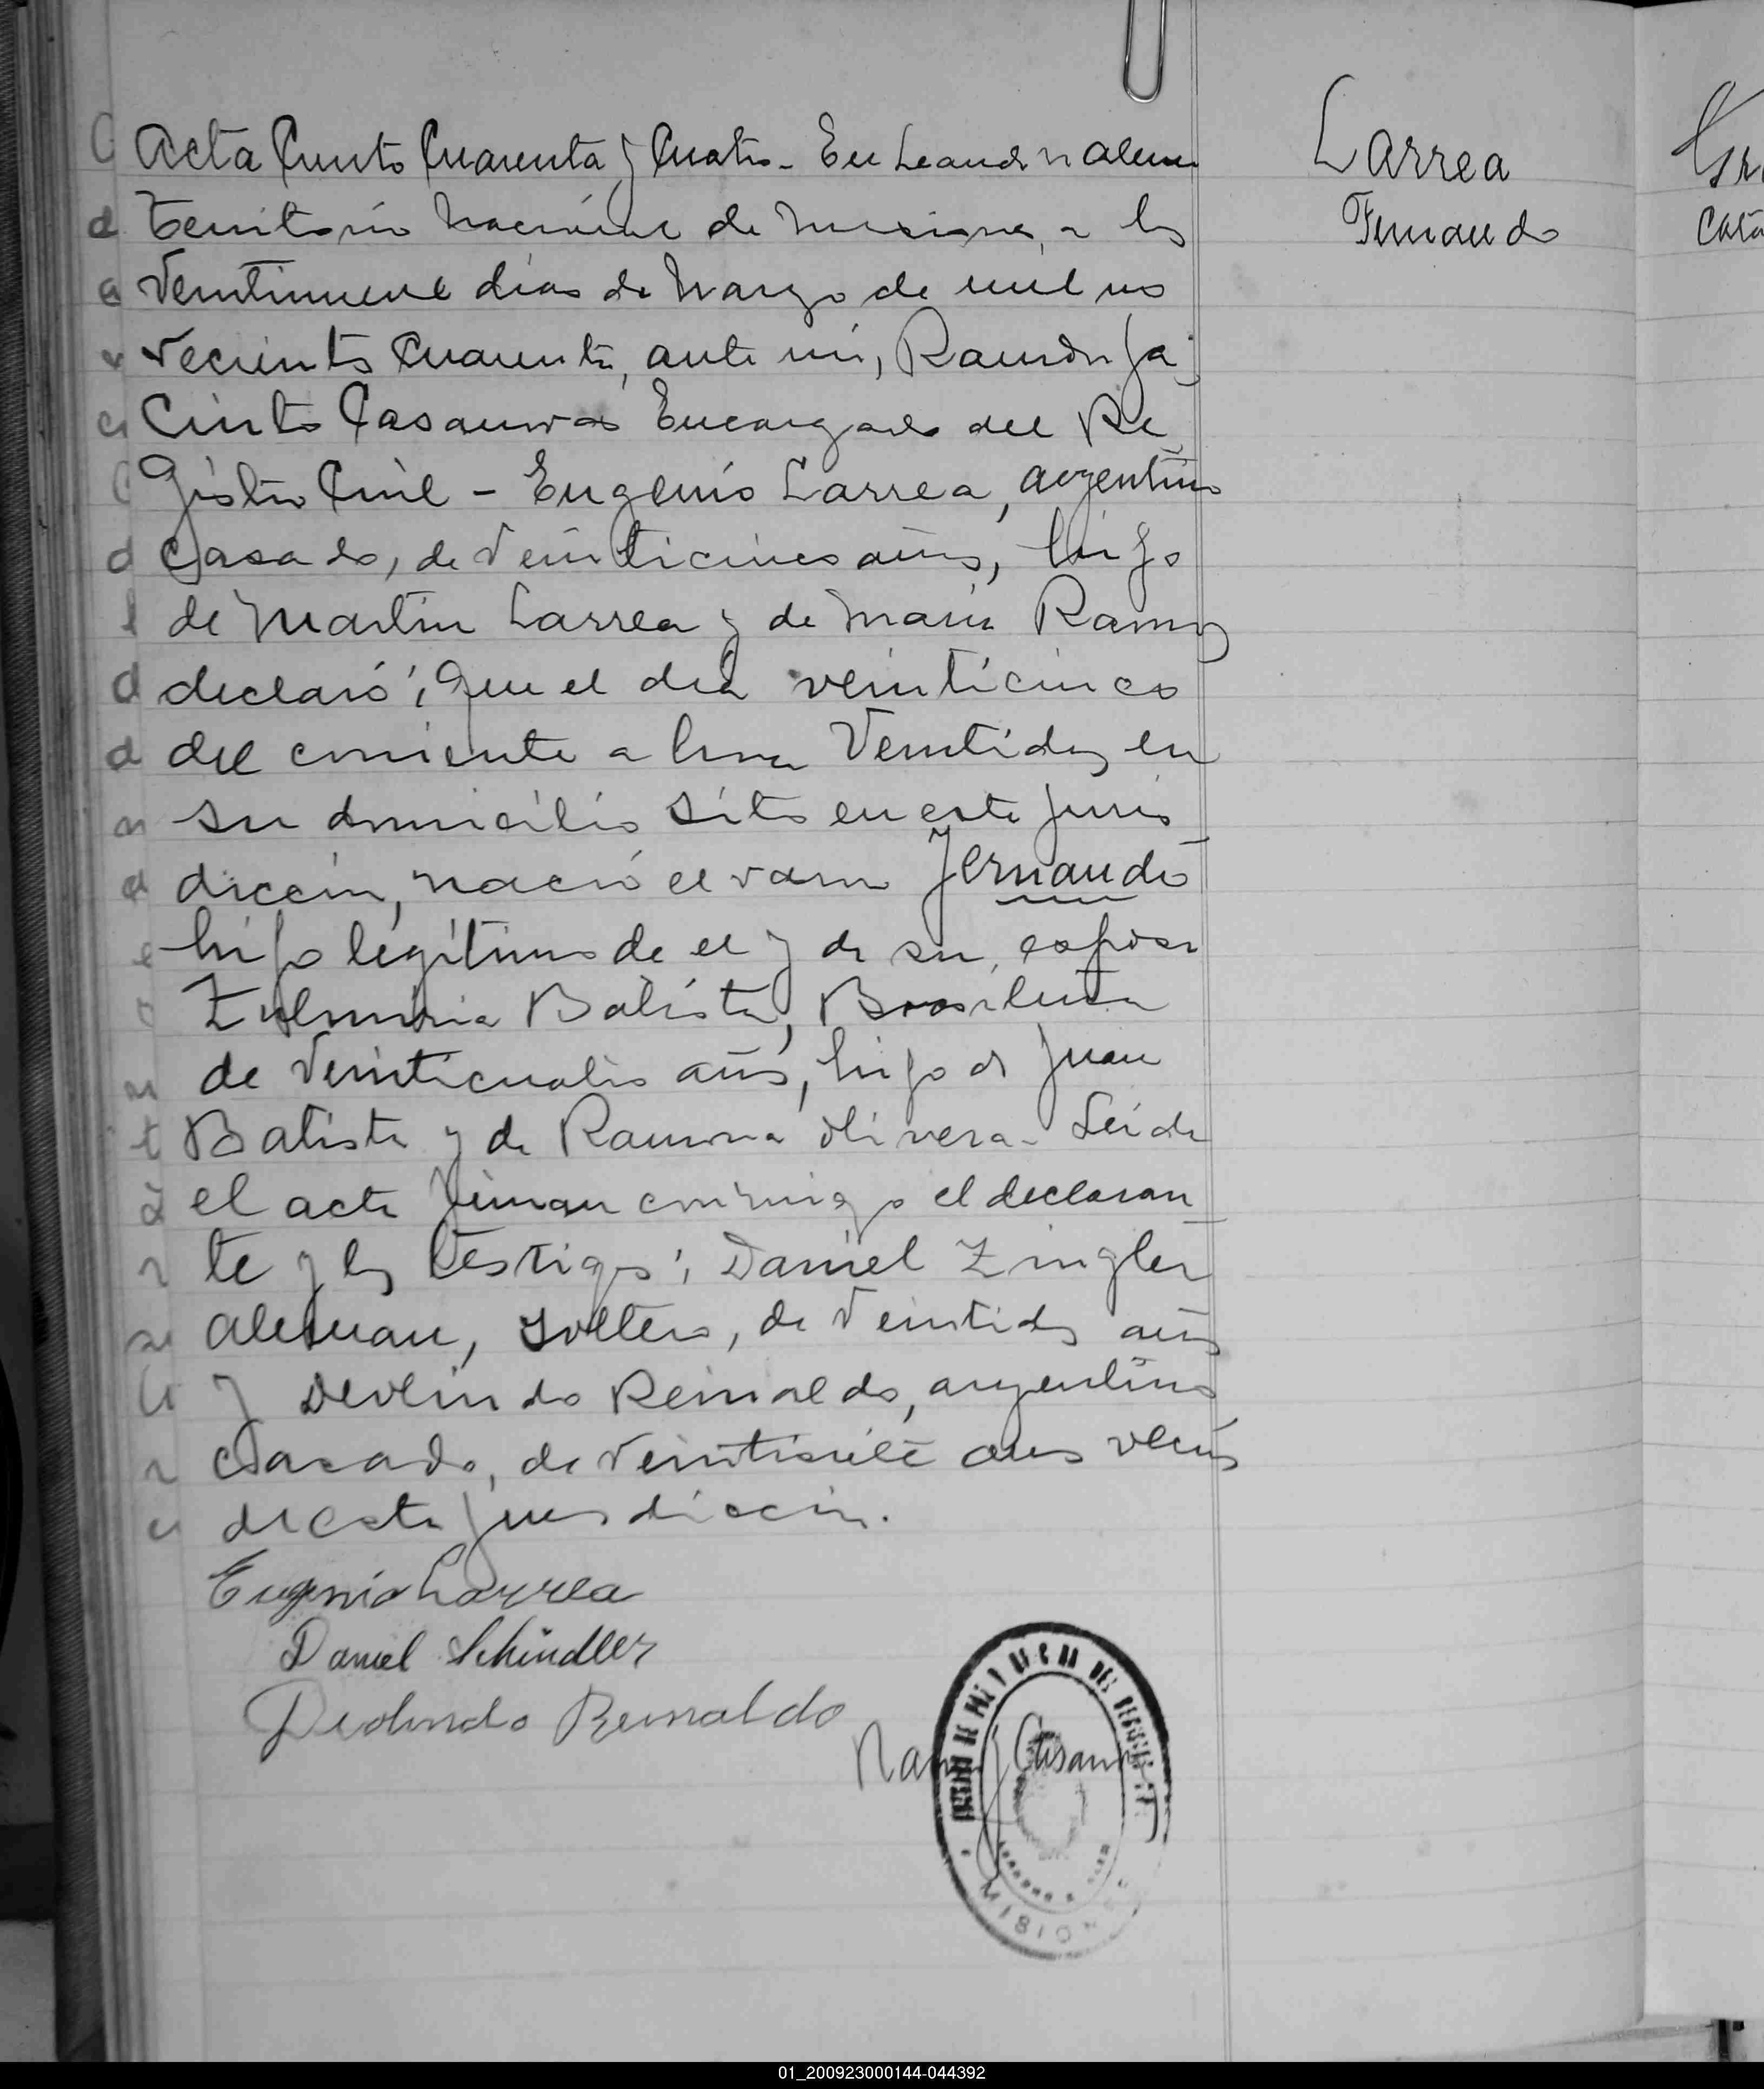 Acta Ciento Cuarenta y Cuatro - En Leandro N Alem
Larrea
Fernando
Territorio Nacional de Misiones, a los
Veintinueve dias de Marzo de mil no
vecientos Cuarenta, ante mi, Ramón Ja
Cinto Casanova Encargado del Re
gistro Civil - Eugenio Larrea, argentino
Casado, de Veinticinco años, hijo
de Martin Larrea y de Maria Ramos
declaró; Que el dia veinticinco
del corriente a hora Veintidos en
su domicilio sito en esta juris
dicción, nació el varon Fernando
hijo legítimo de el y de su esposa
Batista, Brasileña
de Veinticuatro años, hija de Juan
Batista y de Ramona Olivera - Leida
el acta firman conmigo el declaran
te y los testigos; Daniel Zingler
Aleman, Soltero, de Veintidos años
y Deolindo Reinaldo, argentino
Casado, de Veintisiete años vecinos
de esta jurisdicción.
Eugenio Larrea
Daniel Schindler
Deolindo Reinaldo
Ramon J Casanova
MISIONES
01_200923000144-044392